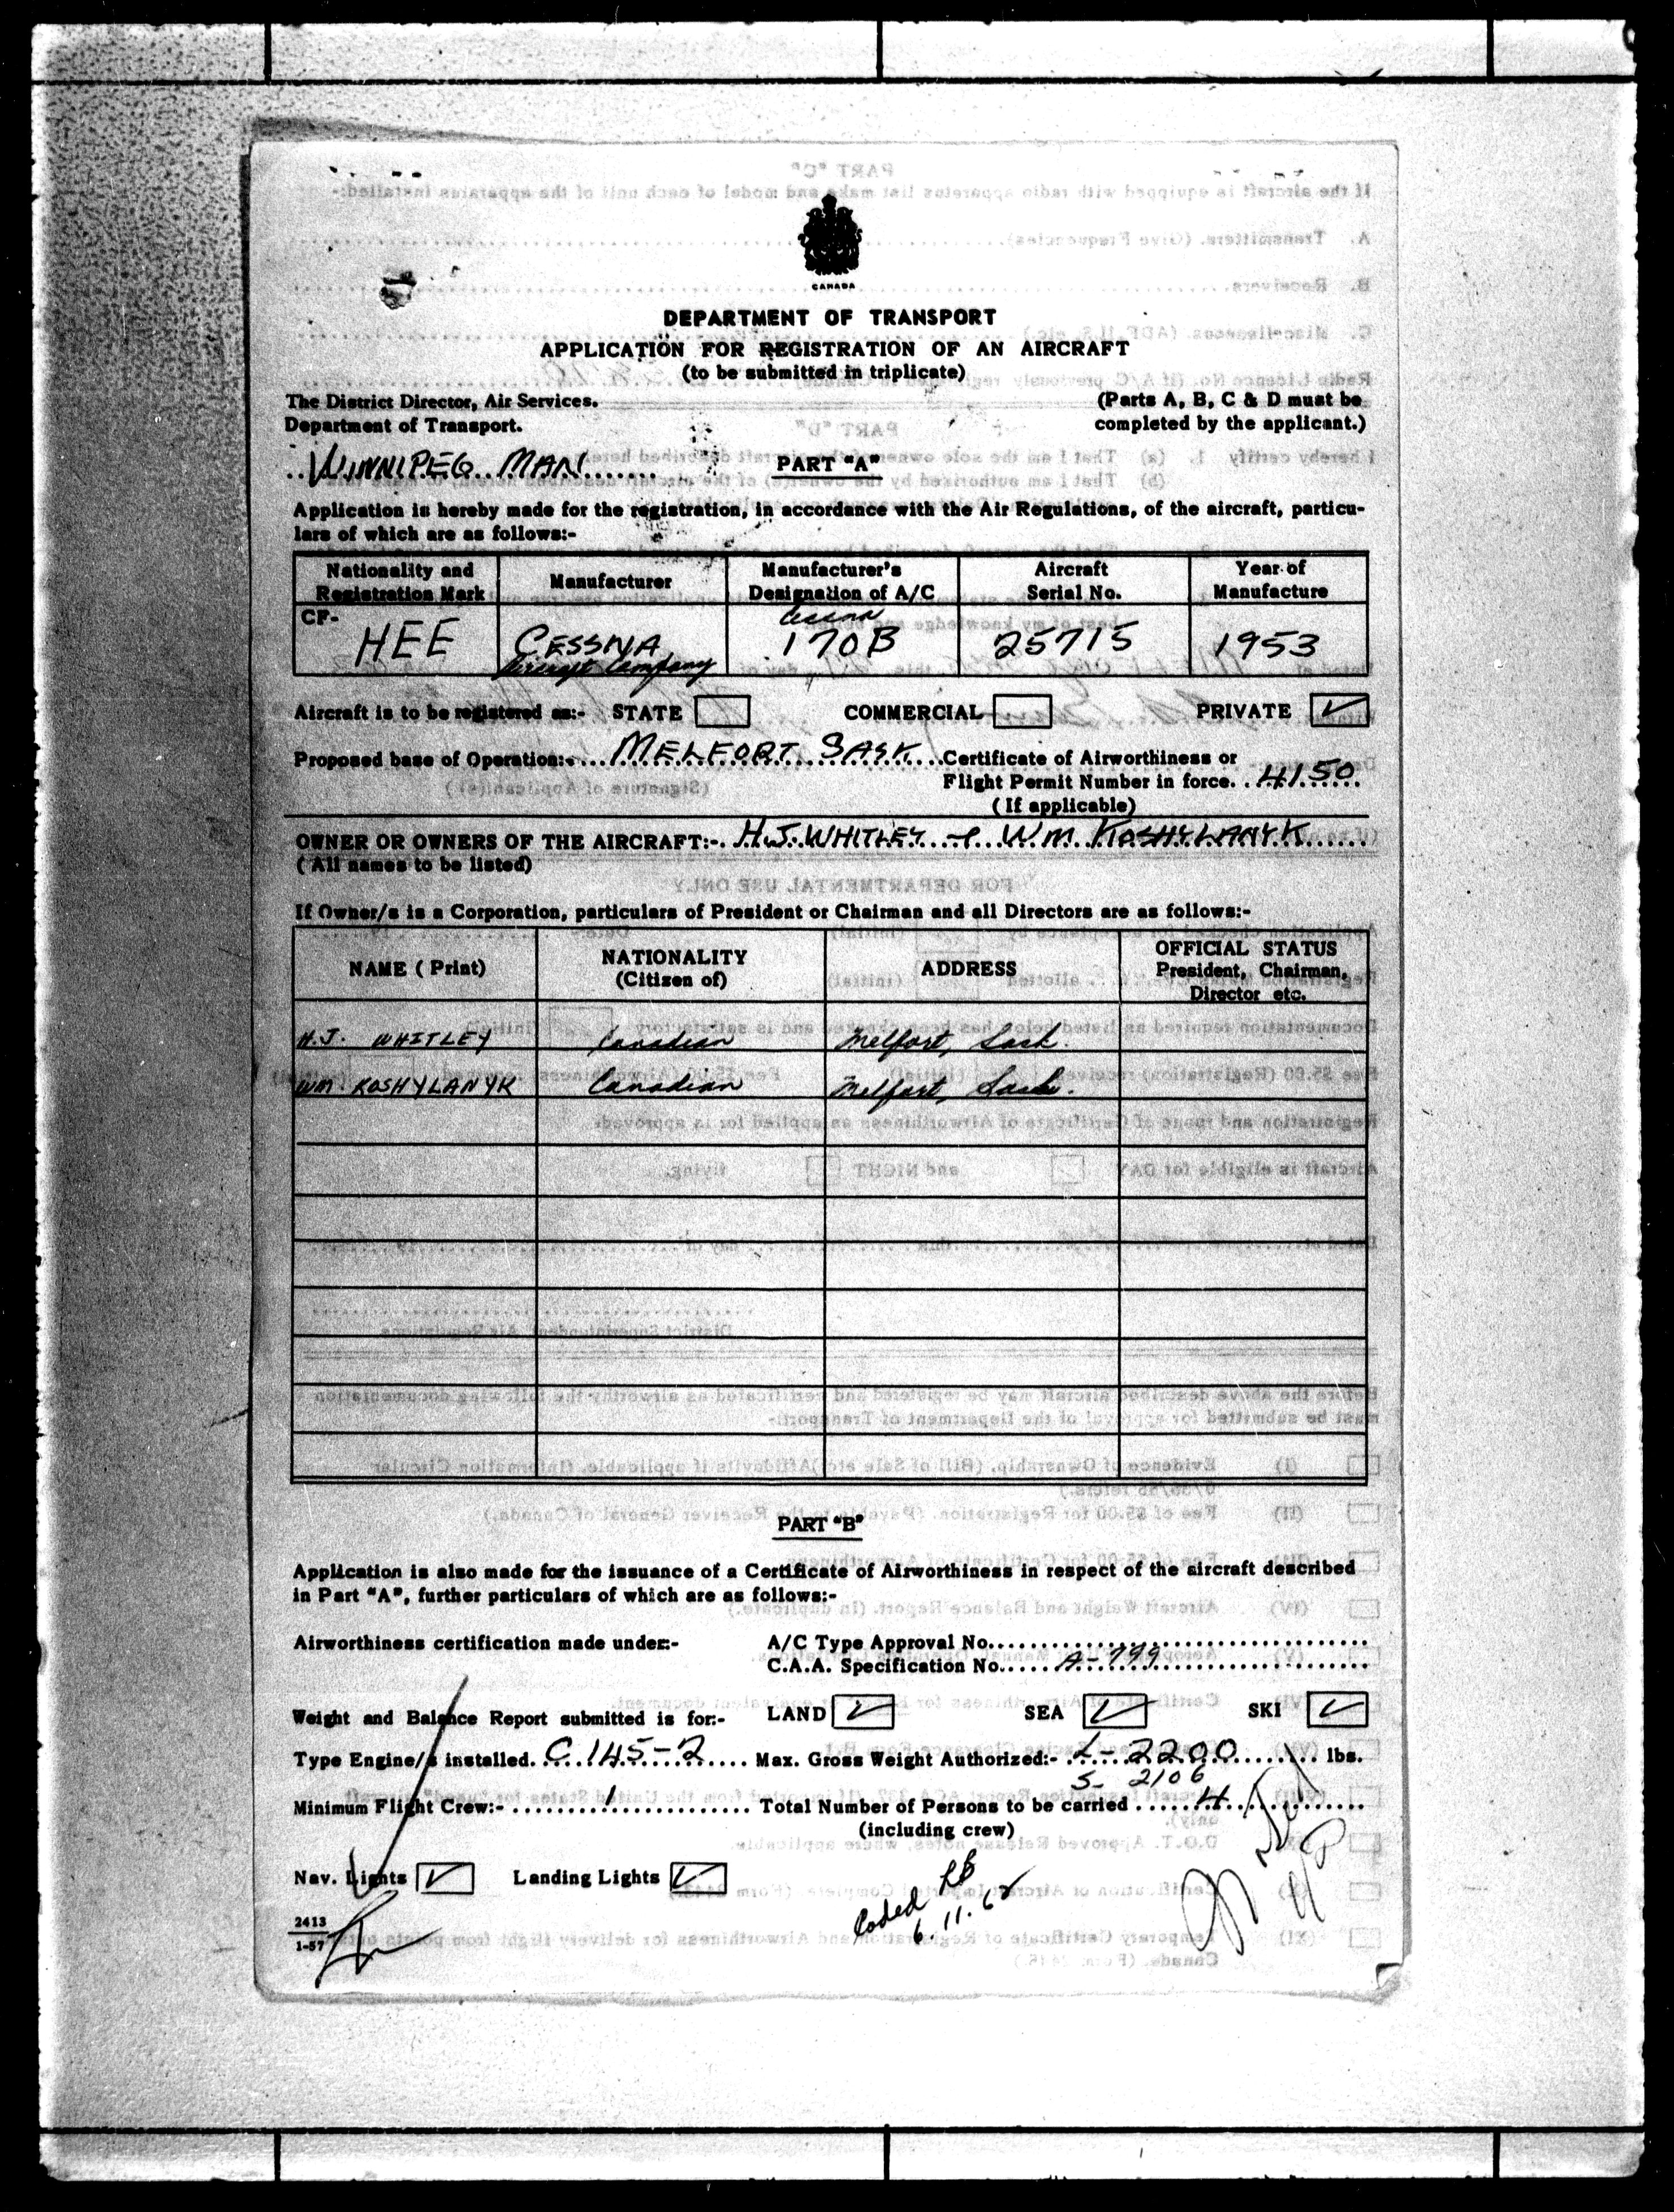 CANADA
DEPARTMENT OF TRANSPORT
APPLICATION FOR REGISTRATION OF AN AIRCRAFT
(to be submitted in triplicate)
The District Director, Air Services.
Department of Transport.
(Parts A, B, C & D must be
completed by the applicant.)
WINNIPEG MAN
PART "A"
Application is hereby made for the registration, in accordance with the Air Regulations, of the aircraft, particu-
lars of which are as follows:-
Nationality and Registration Mark Manufacturer Manufacturer's Designation of A/C Aircraft Serial No. Year of Manufacture
CF- HEE CESSNA Aircraft Company Cessna 170B 25715 1953
Aircraft is to be registered as:- STATE COMMERCIAL PRIVATE ✓
Proposed base of Operation:- MELFORT SASK Certificate of Airworthiness or
Flight Permit Number in force. 4150
(If applicable)
OWNER OR OWNERS OF THE AIRCRAFT:- H.J. WHITLEY & WM KOSHYLANYK
(All names to be listed)
If Owner/s is a Corporation, particulars of President or Chairman and all Directors are as follows:-
NAME (Print) NATIONALITY (Citizen of) ADDRESS OFFICIAL STATUS President, Chairman, Director etc.
H.J. WHITLEY Canadian Melfort, Sask.
WM. KOSHYLANYK Canadian Melfort, Sask.
PART "B"
Application is also made for the issuance of a Certificate of Airworthiness in respect of the aircraft described
in Part "A", further particulars of which are as follows:-
Airworthiness certification made under:- A/C Type Approval No.
C.A.A. Specification No. A-799
Weight and Balance Report submitted is for:- LAND ✓ SEA ✓ SKI ✓
Type Engine/s installed. C 145-2 Max. Gross Weight Authorized:- L-2200 lbs.
S- 2106
Minimum Flight Crew:- 1 Total Number of Persons to be carried 4
(including crew)
Nav. Lights ✓ Landing Lights ✓
Coded
6.11.62
2413
1-57